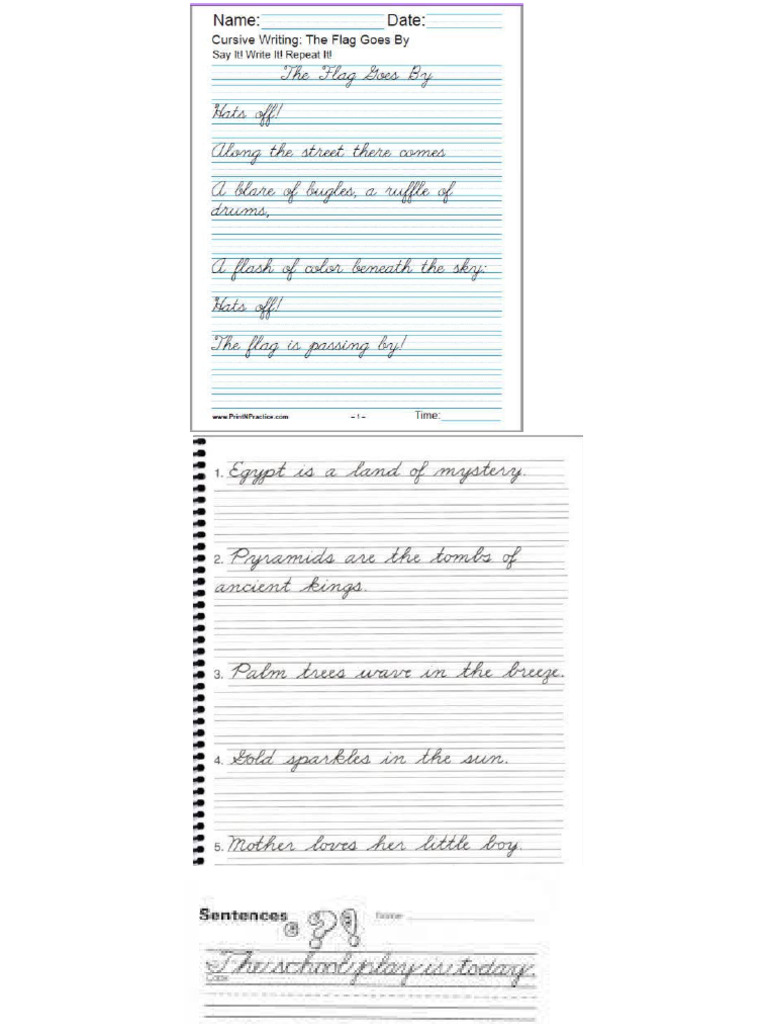 Name: Date:
Cursive Writing: The Flag Goes By
Say It! Write It! Repeat It!
The Flag Goes By
Hats off!
Along the street there comes
A blare of bugles, a ruffle of
drums,
A flash of color beneath the sky:
Hats off!
The flag is passing by!
www.PrintNPractice.com – 1 – Time:
1. Egypt is a land of mystery.
2. Pyramids are the tombs of
ancient kings.
3. Palm trees wave in the breeze.
4. Gold sparkles in the sun.
5. Mother loves her little boy.
Sentences . ? ! Name
The school play is today.
Copy